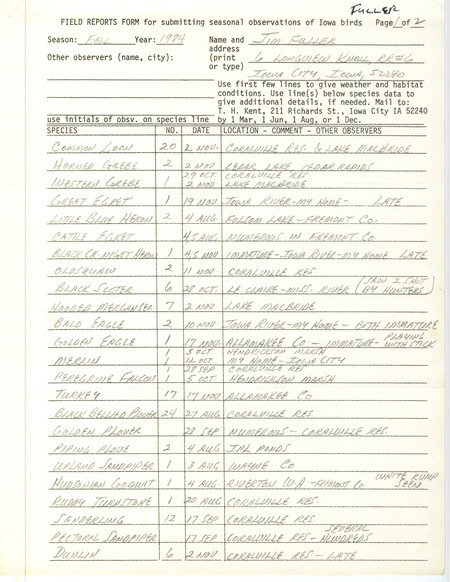 FULLER
FIELD REPORTS FORM for submitting seasonal observations of Iowa birds Page 1 of 2
Season: FALL Year: 1984 Name and JIM FULLER
address
Other observers (name, city): (print 6 LONGVIEW KNOLL, RR#6
or type) IOWA CITY, IOWA, 52240
Use first few lines to give weather and habitat
conditions. Use line(s) below species data to
give additional details, if needed. Mail to:
T. H. Kent, 211 Richards St., Iowa City IA 52240
use initials of obsv. on species line by 1 Mar, 1 Jun, 1 Aug, or 1 Dec.
SPECIES NO. DATE LOCATION - COMMENT - OTHER OBSERVERS
COMMON LOON 20 2 NOV CORALVILLE RES. & LAKE MACBRIDE
HORNED GREBE 2 2 NOV CEDAR LAKE CEDAR RAPIDS
29 OCT CORALVILLE RES
WESTERN GREBE 1 2 NOV LAKE MACBRIDE
GREAT EGRET 1 19 NOV IOWA RIVER-MY HOME- LATE
LITTLE BLUE HERON 2 4 AUG FOLSOM LAKE-FREMONT CO.
CATTLE EGRET 4,5 AUG NUMEROUS IN FREMONT CO.
BLACK CR. NIGHT HERON 1 4,5 NOV IMMATURE-IOWA RIVER-MY HOME LATE
OLDSQUAW 2 11 NOV CORALVILLE RES
BLACK SCOTER 6 28 OCT LE CLAIRE-MISS. RIVER (SAW 2 SHOT BY HUNTERS)
HOODED MERGANSER 7 2 NOV LAKE MACBRIDE
BALD EAGLE 2 10 NOV IOWA RIVER-MY HOME- BOTH IMMATURE
GOLDEN EAGLE 1 17 NOV ALLAMAKEE CO - IMMATURE- PLAYING WITH STICK
1 5 OCT HENDRICKSON MARSH
MERLIN 1 12 OCT MY HOME-IOWA CITY
1 28 SEP CORALVILLE RES
PEREGRINE FALCON 1 5 OCT HENDRICKSON MARSH
TURKEY 17 17 NOV ALLAMAKEE CO
BLACK BELLIED PLOVER 24 27 AUG CORALVILLE RES.
GOLDEN PLOVER 28 SEP NUMEROUS - CORALVILLE RES.
PIPING PLOVE 2 4 AUG IPL PONDS
UPLAND SANDPIPER 1 3 AUG WAYNE CO
HUDSONIAN GODWIT 1 4 AUG RIVERTON WA-FREMONT CO WHITE RUMP SEEN
RUDDY TURNSTONE 1 20 AUG CORALVILLE RES.
SANDERLING 12 17 SEP CORALVILLE RES
PECTORAL SANDPIPER 17 SEP CORALVILLE RES- SEVERAL HUNDREDS
DUNLIN 6 2 NOV CORALVILLE RES-LATE